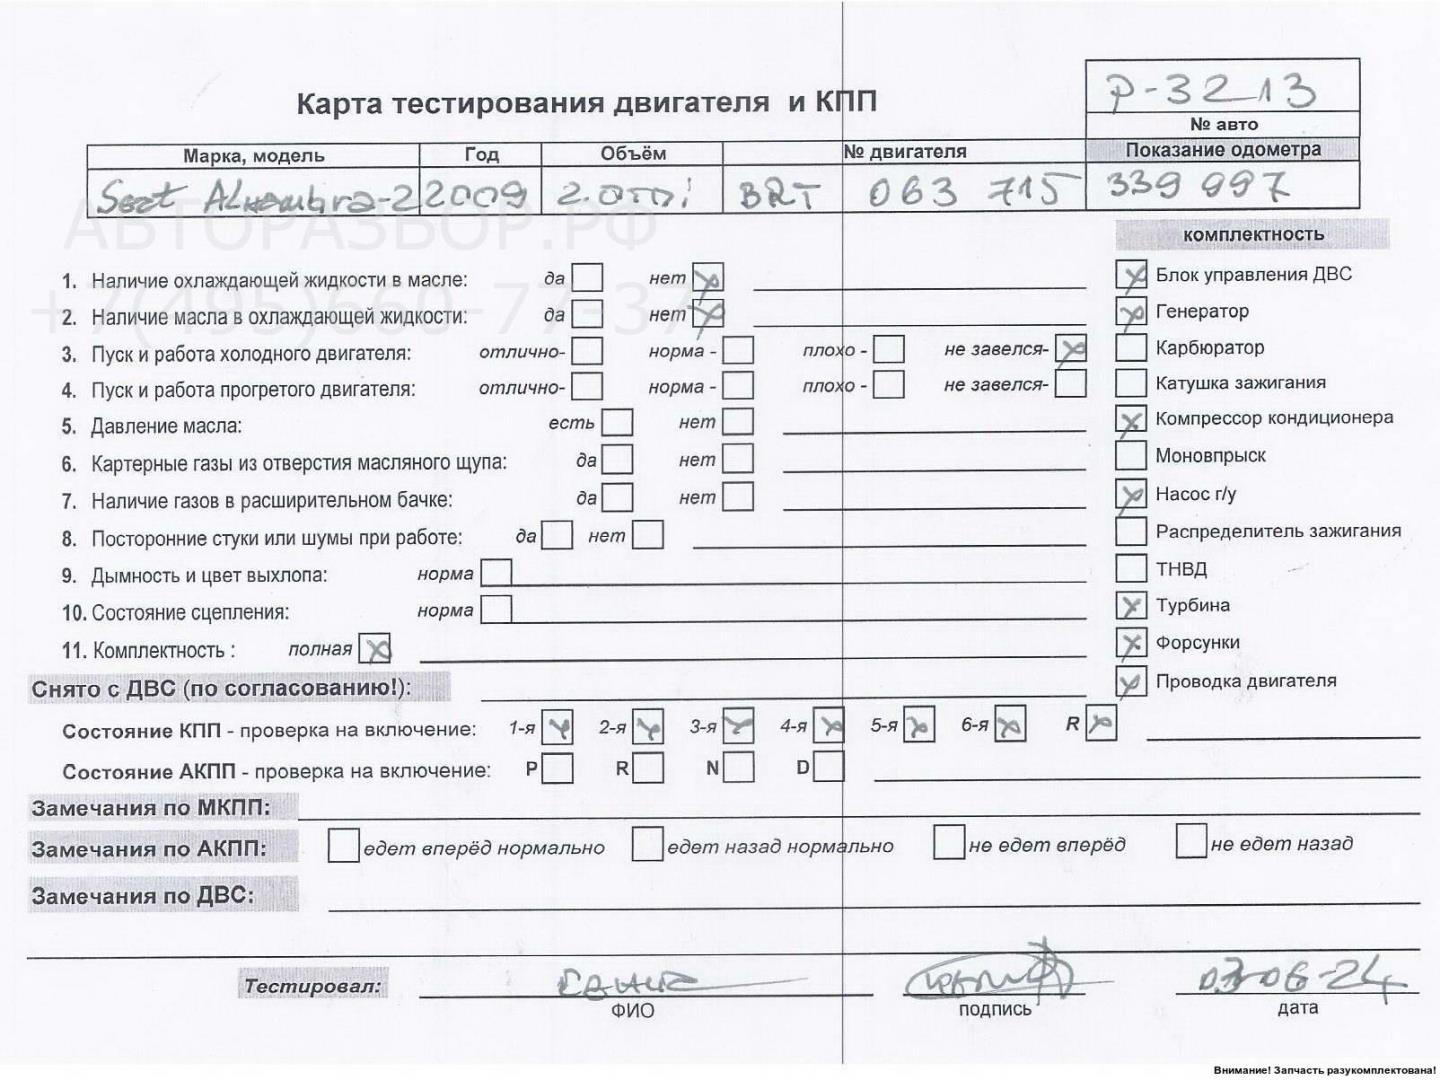 Р-3213
Карта тестирования двигателя и КПП
№ авто
Марка, модель Год Объём № двигателя Показание одометра
Seat Alhambra-2 2009 2.0TDi BRT 063 715 339 997
АВТОРАЗБОР.РФ
комплектность
1. Наличие охлаждающей жидкости в масле: да нет Блок управления ДВС
+7(495)660-77-37
2. Наличие масла в охлаждающей жидкости: да нет Генератор
3. Пуск и работа холодного двигателя: отлично- норма - плохо - не завелся- Карбюратор
4. Пуск и работа прогретого двигателя: отлично- норма - плохо - не завелся- Катушка зажигания
5. Давление масла: есть нет Компрессор кондиционера
6. Картерные газы из отверстия масляного щупа: да нет Моновпрыск
7. Наличие газов в расширительном бачке: да нет Насос г/у
8. Посторонние стуки или шумы при работе: да нет Распределитель зажигания
9. Дымность и цвет выхлопа: норма ТНВД
10. Состояние сцепления: норма Турбина
11. Комплектность : полная Форсунки
Снято с ДВС (по согласованию!): Проводка двигателя
Состояние КПП - проверка на включение: 1-я 2-я 3-я 4-я 5-я 6-я R
Состояние АКПП - проверка на включение: P R N D
Замечания по МКПП:
Замечания по АКПП: едет вперёд нормально едет назад нормально не едет вперёд не едет назад
Замечания по ДВС:
Тестировал: 03-06-24
ФИО подпись дата
Внимание! Запчасть разукомплектована!